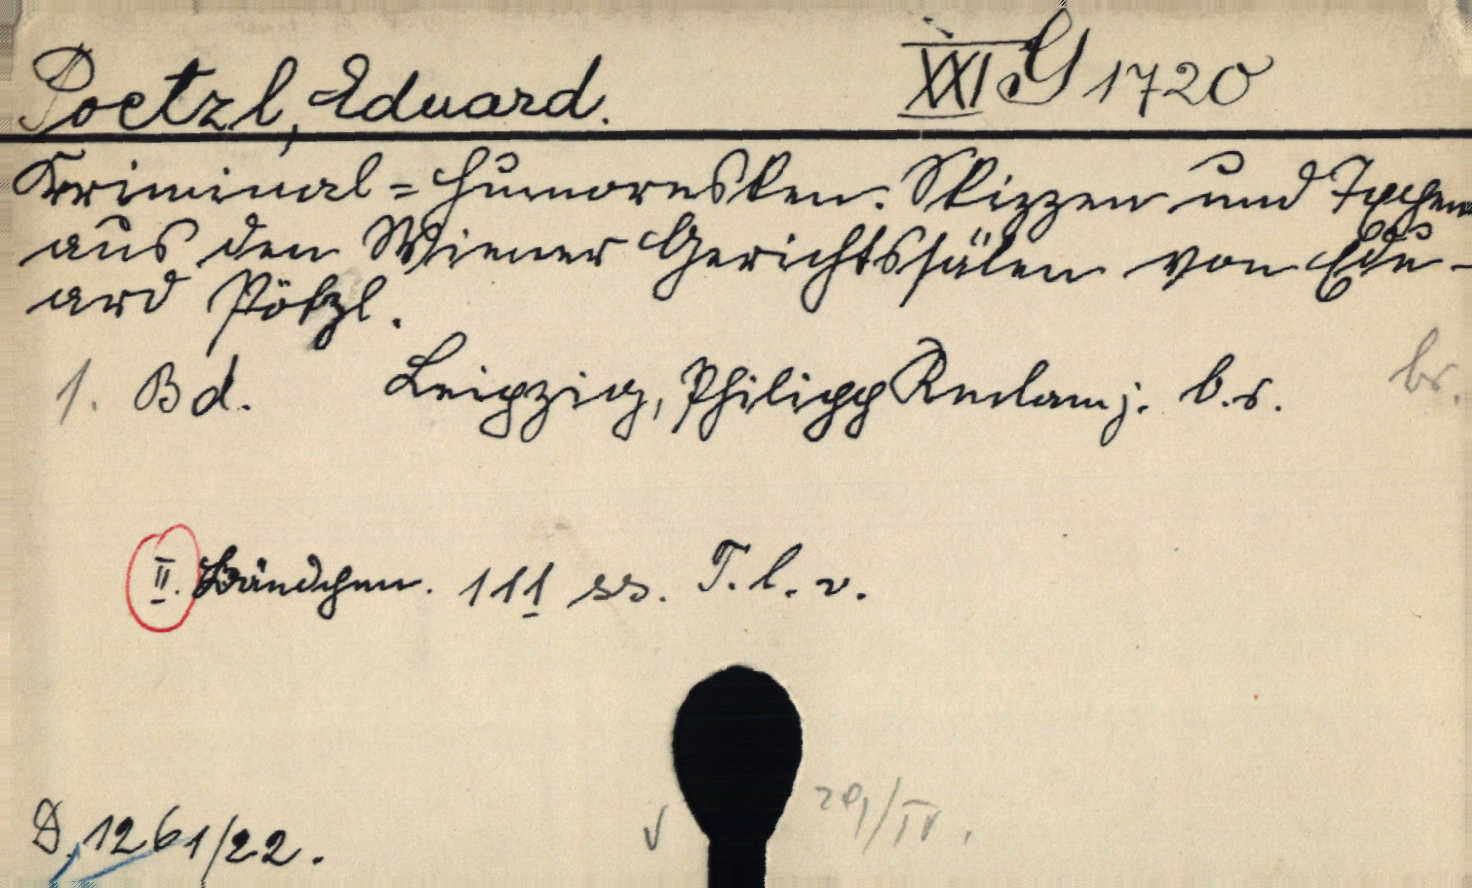 Poetzl, Eduard.
XXI G 1720
Kriminal=Humoresken. Skizzen und Typen
aus den Wiener Gerichtssälen von Edu-
ard Pötzl.
1. Bd. Leipzig, Philipp Reclam j. b.r. br.
II. Bändchen. 111 ss. T. l. v.
D. 1261/22.